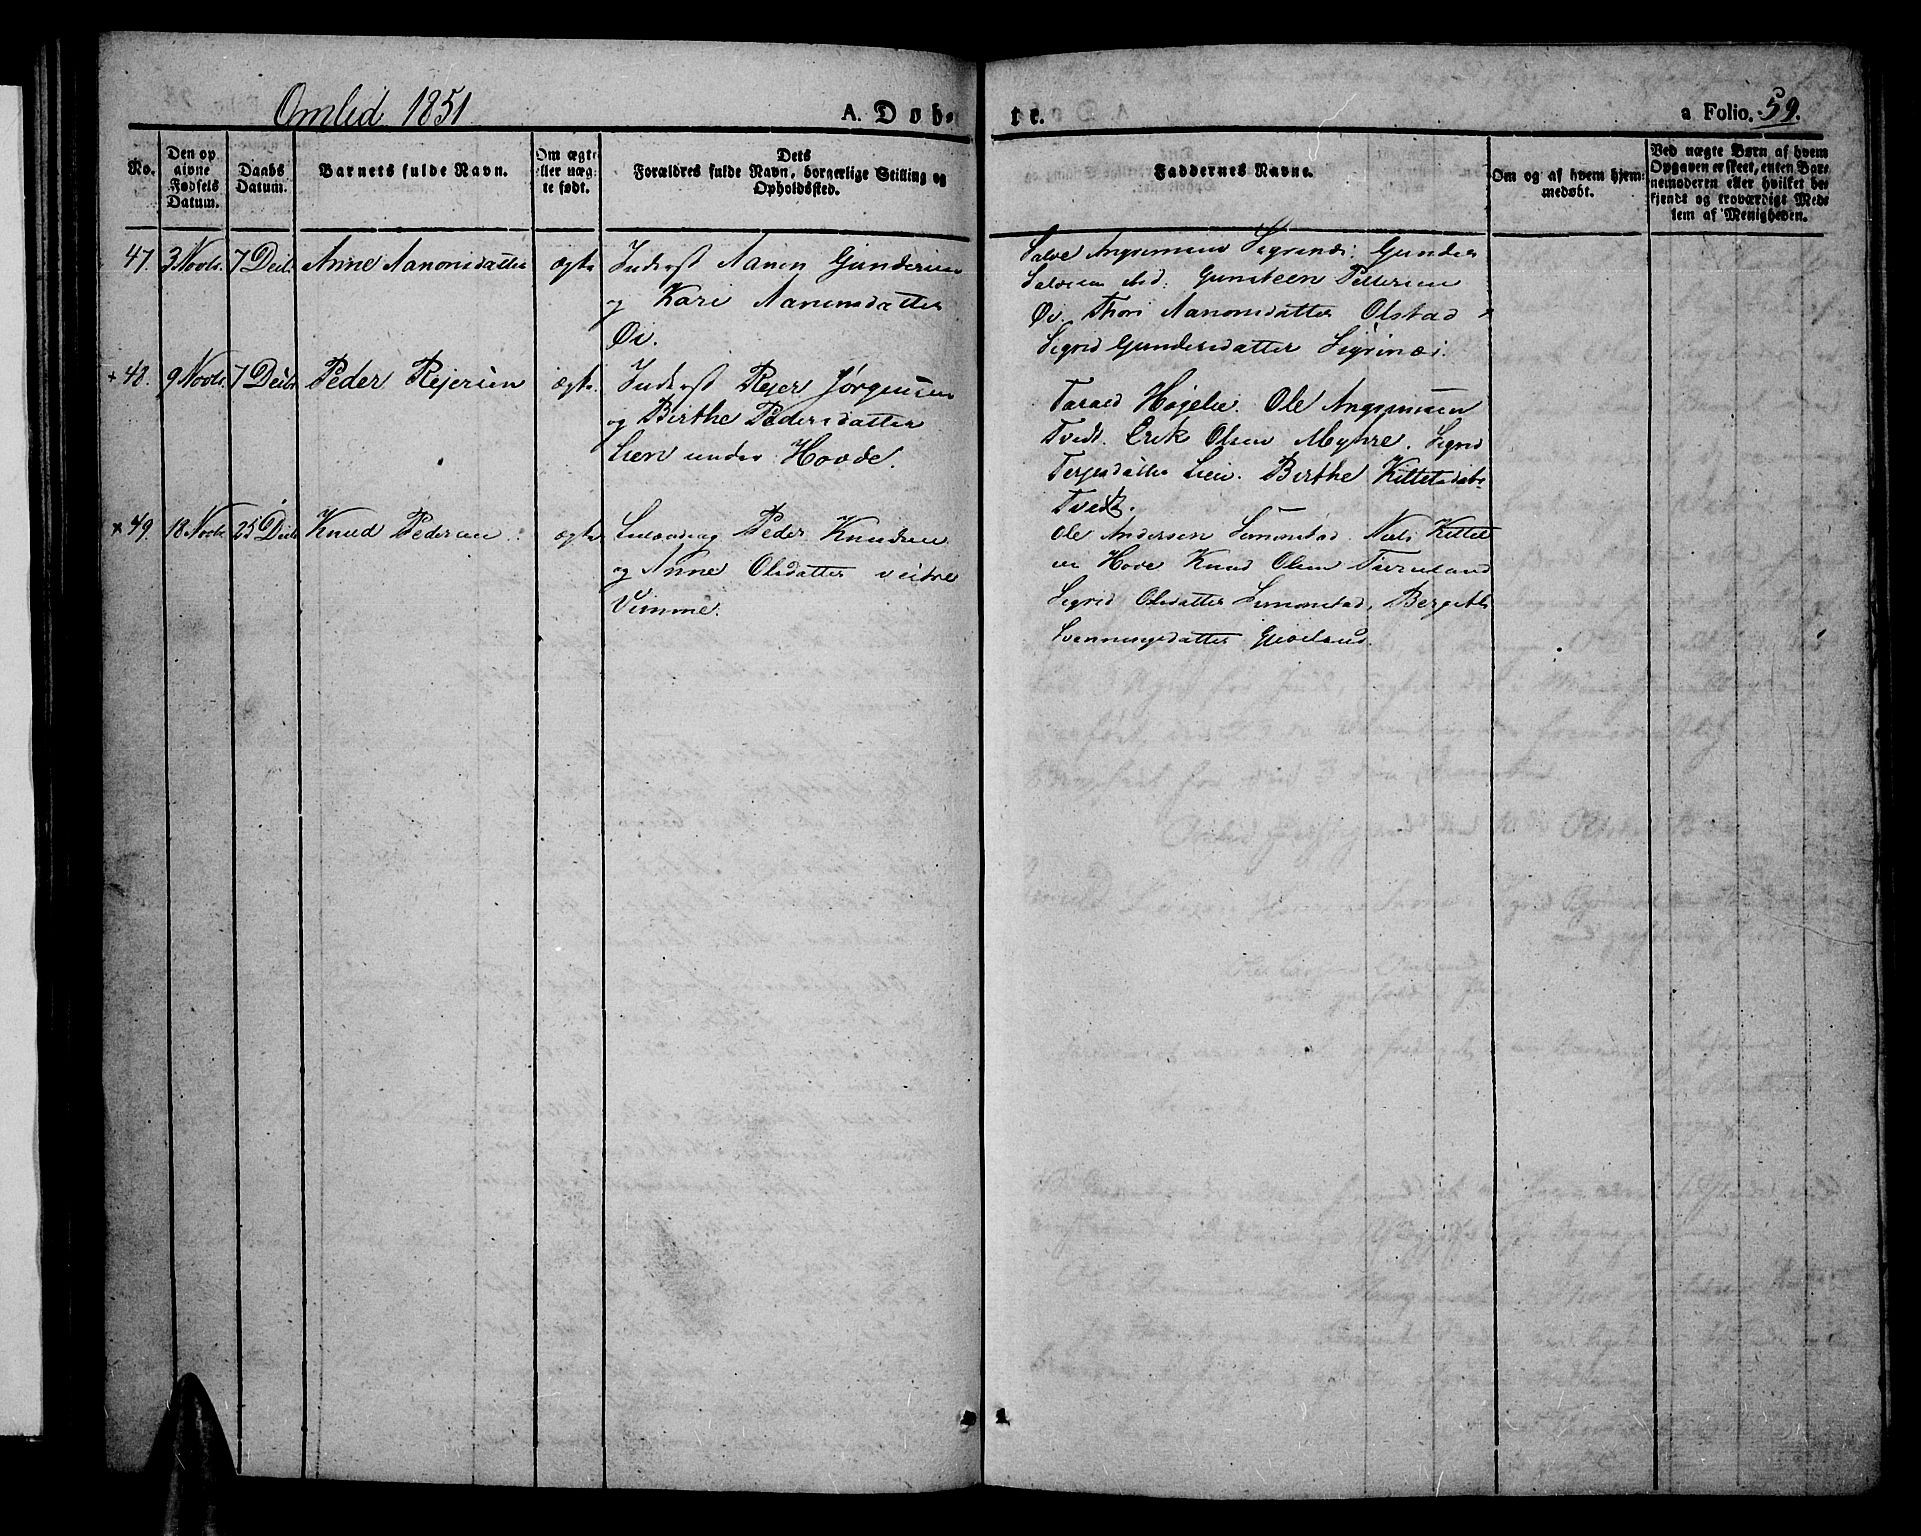 Omlid 1851
A. Døb-
te.
a Folio. 59.
No.
Den op
givne
Fødsels
Datum.
Daabs
Datum.
Barnets fulde Navn.
Om ægte
eller uæg-
te født.
Dets
Forældres fulde Navn, borgerlige Stilling og
Opholdssted.
Faddernes Navne.
Om og af hvem hjem-
medøbt.
Ved uægte Børn af hvem
Opgaven er skeet, enten Bar-
nemoderen eller hvilket be-
kjendt og troværdigt Med-
lem af Menigheden.
47. 3 Novb. 7 Decb. Anne Aanonsdatter ægte Inderst Aanon Gundersen
og Kari Aanonsdatter
Øi.
Salve Angrimsen Sigrinæs: Gunder
Gunsteen Pettersen
Øi. Thori Aanonsdatter Olstad
Sigrid Gundersdatter Sigrinæs.
+ 48. 9 Novb. 7 Decb. Peder Rejersen ægte Inderst Rejer Jørgensen
og Birthe Pedersdatter
Lien under Hovde.
Tarald Høgelie. Ole Angrimsen
Tvedt. Erik Olsen Myhre. Sigrid
Terjesdatter Lien. Birthe Kittelsdatr
Tvedt.
× 49. 18 Novb. 25 Decb. Knud Pedersen ægte Peder Knudsen
og Anne Olsdatter vestre
Vimme.
Ole Andersen Simonstad. Niels Kittel
sen Hove Knud Olsen
Sigrid Olsdatter Simonstad, Bergith
Svenningsdatter